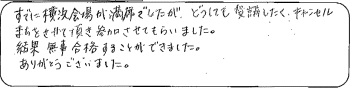 すでに横浜会場が満席でしたが、どうしても受講したく、キャンセル
まちをさせて頂き参加させてもらいました。
結果、無事合格することができました。
ありがとうございました。